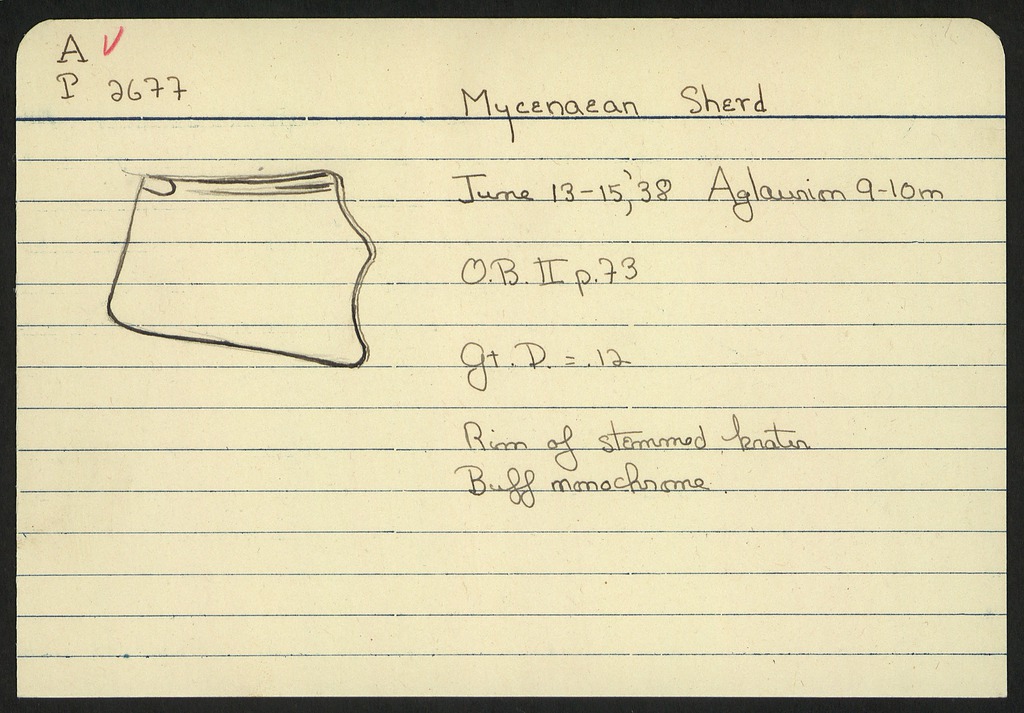 A
P 2677
Mycenaean Sherd
June 13-15,'38 Aglaurion 9-10m
O.B. II p.73
Gt. D. = .12
Rim of stemmed krater
Buff monochrome.